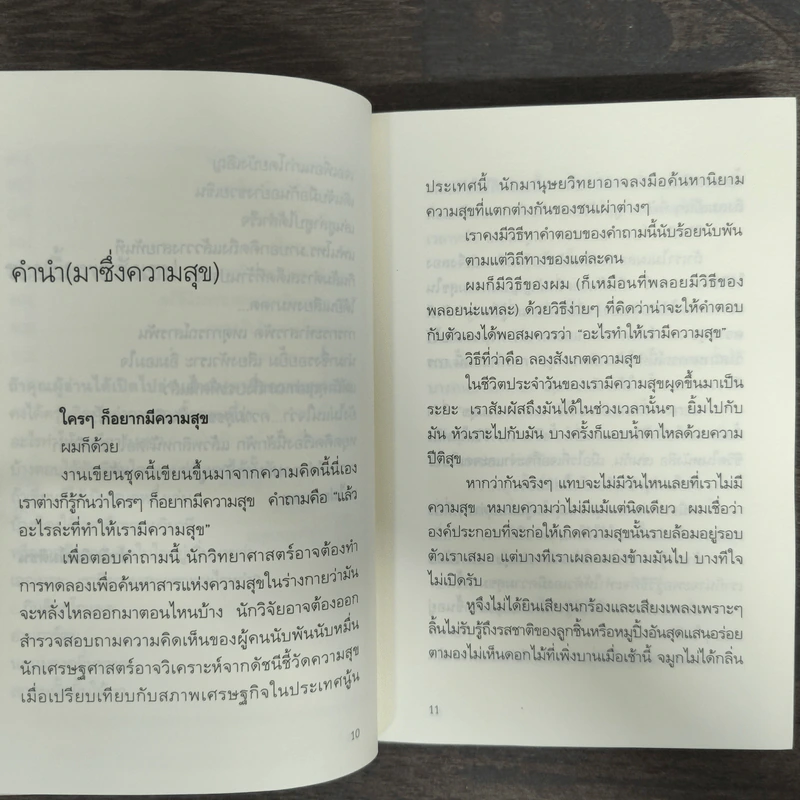 คำนำ(มาซึ่งความสุข)
ใครๆ ก็อยากมีความสุข
ผมก็ด้วย
งานเขียนชุดนี้เขียนขึ้นมาจากความคิดนี้นี่เอง
เราต่างก็รู้กันว่าใครๆ ก็อยากมีความสุข คำถามคือ "แล้ว
อะไรล่ะที่ทำให้เรามีความสุข"
เพื่อตอบคำถามนี้ นักวิทยาศาสตร์อาจต้องทำ
การทดลองเพื่อค้นหาสารแห่งความสุขในร่างกายว่ามัน
จะหลั่งไหลออกมาตอนไหนบ้าง นักวิจัยอาจต้องออก
สำรวจสอบถามความคิดเห็นของผู้คนนับพันนับหมื่น
นักเศรษฐศาสตร์อาจวิเคราะห์จากดัชนีชี้วัดความสุข
เมื่อเปรียบเทียบกับสภาพเศรษฐกิจในประเทศนู้น
10
ประเทศนี้ นักมานุษยวิทยาอาจลงมือค้นหานิยาม
ความสุขที่แตกต่างกันของชนเผ่าต่างๆ
เราคงมีวิธีหาคำตอบของคำถามนี้นับร้อยนับพัน
ตามแต่วิถีทางของแต่ละคน
ผมก็มีวิธีของผม (ก็เหมือนที่พลอยมีวิธีของ
พลอยน่ะแหละ) ด้วยวิธีง่ายๆ ที่คิดว่าน่าจะให้คำตอบ
กับตัวเองได้พอสมควรว่า "อะไรทำให้เรามีความสุข"
วิธีที่ว่าคือ ลองสังเกตความสุข
ในชีวิตประจำวันของเรามีความสุขผุดขึ้นมาเป็น
ระยะ เราสัมผัสถึงมันได้ในช่วงเวลานั้นๆ ยิ้มไปกับ
มัน หัวเราะไปกับมัน บางครั้งก็แอบน้ำตาไหลด้วยความ
ปีติสุข
หากว่ากันจริงๆ แทบจะไม่มีวันไหนเลยที่เราไม่มี
ความสุข หมายความว่าไม่มีแม้แต่นิดเดียว ผมเชื่อว่า
องค์ประกอบที่จะก่อให้เกิดความสุขนั้นรายล้อมอยู่รอบ
ตัวเราเสมอ แต่บางทีเราเผลอมองข้ามมันไป บางทีใจ
ไม่เปิดรับ
หูจึงไม่ได้ยินเสียงนกร้องและเสียงเพลงเพราะๆ
ลิ้นไม่รับรู้ถึงรสชาติของลูกชิ้นหรือหมูปิ้งอันสุดแสนอร่อย
ตามองไม่เห็นดอกไม้ที่เพิ่งบานเมื่อเช้านี้ จมูกไม่ได้กลิ่น
11